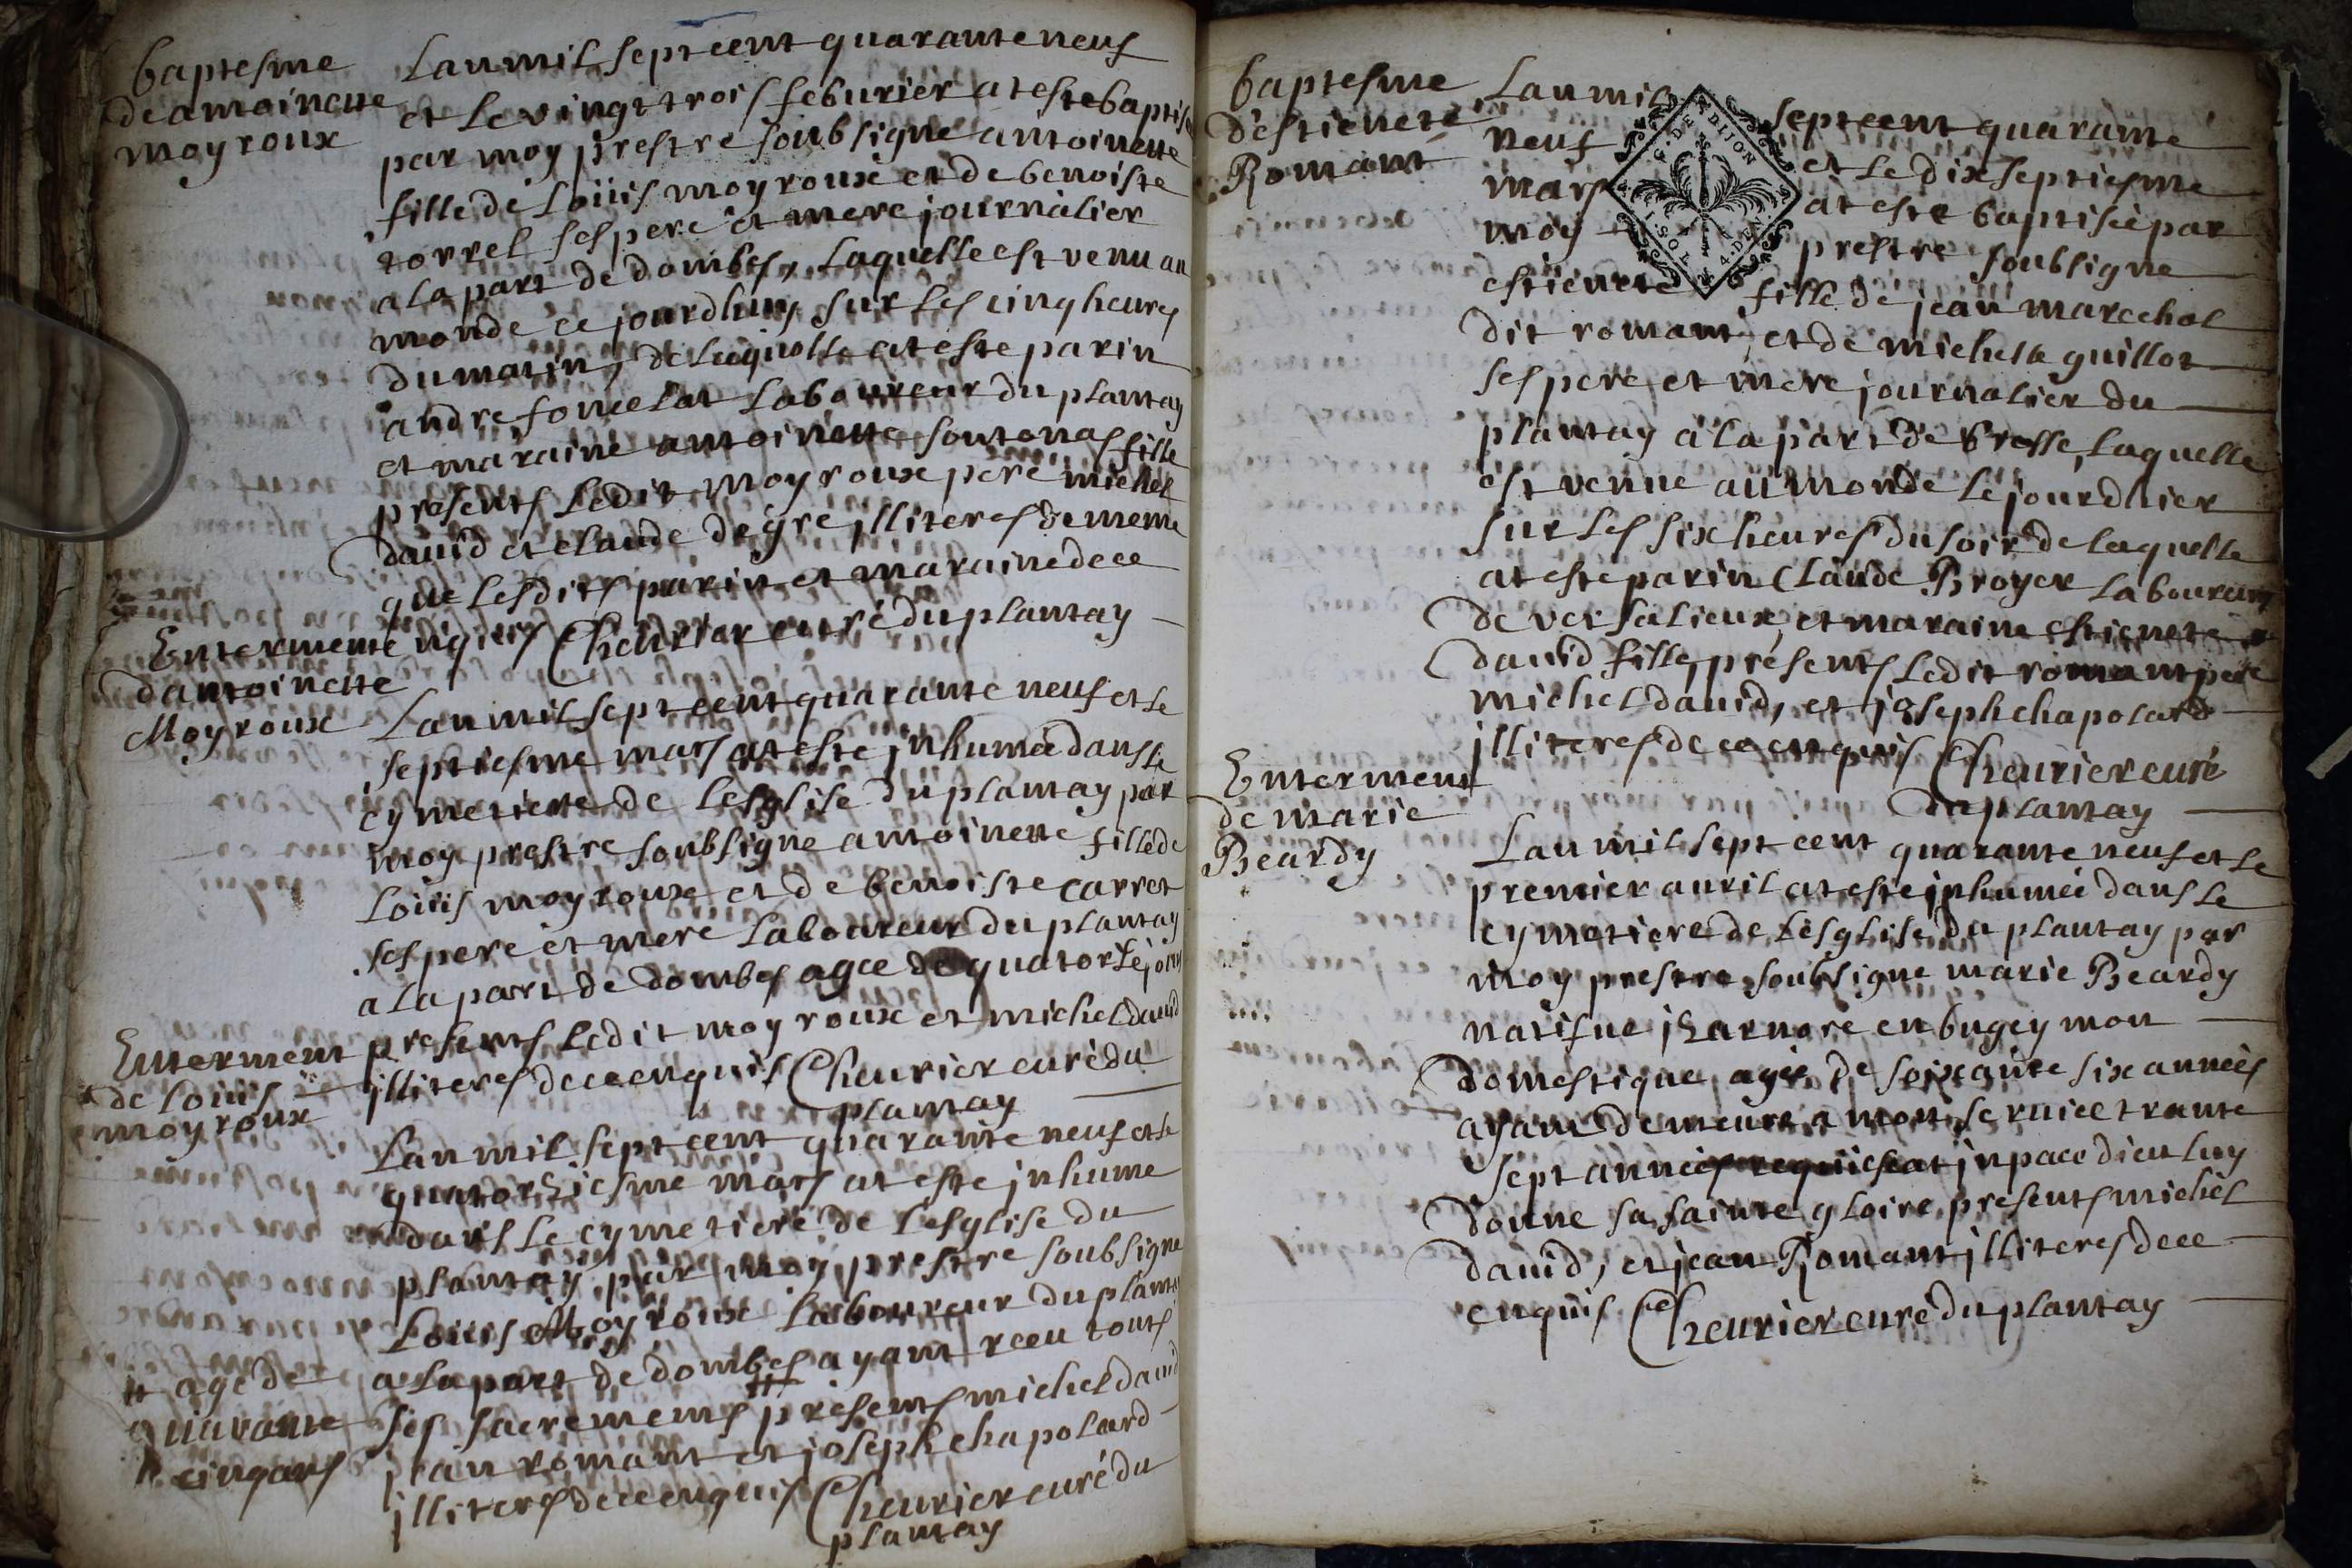 baptesme
de antoinette
moyroux
Lan mil sept cent quarante neuf
et le vingt trois feburier at este baptisé
par moy prestre soubsigne antoinette
fille de Loüis moyroux et de benoiste
torret ses pere et mere journalier
a la part de dombes, laquelle est venu au
monde ce jourdhuy sur les cinq heures
du matin, de laquelle at este parin
andre foncelat Laboureur du plantay
et maraine antoinette soutonas fille
presents ledit moyroux pere michel
dauid et claude degre jlliteres de meme
que lesdits parin et maraine de ce
nquis Cheurier curé du plantay
Enterrement
dantoinette
Moyroux
Lan mil sept cent quarante neuf et le
septiesme mars at este jnhumeé dans le
cymetiere de Lesglise du plantay par
moy prestre soubsigne antoinette fille de
Loüis moyroux et de benoiste carret
ses pere et mere Laboureur du plantay
a la part de dombes agee de quatorze jours
presents ledit moyroux et michel dauid
jlliteres de ce enquis Cheurier curé du
plantay
Enterment
de Loüis
moyroux
Lan mil sept cent quarante neuf et le
quatorziesme mars at este jnhume
dans le cymetiere de Lesglise du
plantay par moy prestre soubsigne
Loüis Moyroux Laboureur du plantay
a la part de dombes # ayant receu touts
# agé de
quarante
cinq ans
ses sacrements presents michel dauid
jean romant et joseph chapolard
jlliteres de ce enquis Cheurier curé du
plantay
baptesme
destienete
Romant
Lan mil sept cent quarante
neuf et le dix septiesme
mars at este baptiseé par
moy prestre soubsigne
estienete fille de jean marechal
dit romant, et de michelle guillot
ses pere et mere journalier du
plantay a la part de bresse, laquelle
est venue au monde le jourdhier
sur les six heures du soir de laquelle
at este parin Claude Broyer Laboureur
de versalieux, et maraine estienete
dauid fille, presents ledit romant pere
michel dauid, et joseph chapolard
jlliteres de ce enquis Cheurier curé
du plantay
G. DE DIJON
1. SOL 4. DEN.
Enterment
de marie
Beardy
Lan mil sept cent quarante neuf et le
premier auril at este jnhumeé dans le
cymetiere de Lesglise du plantay par
moy prestre soubsigne marie Beardy
natifue jzarnore en bugey mon
domestique ageé de soixante six anneés
ayant demeuré a mon seruice trante
sept anneés requiescat jn pace dieu luy
donne sa sainte gloire, presents michel
dauid, et jean Romant jlliteres de ce
enquis Cheurier curé du plantay